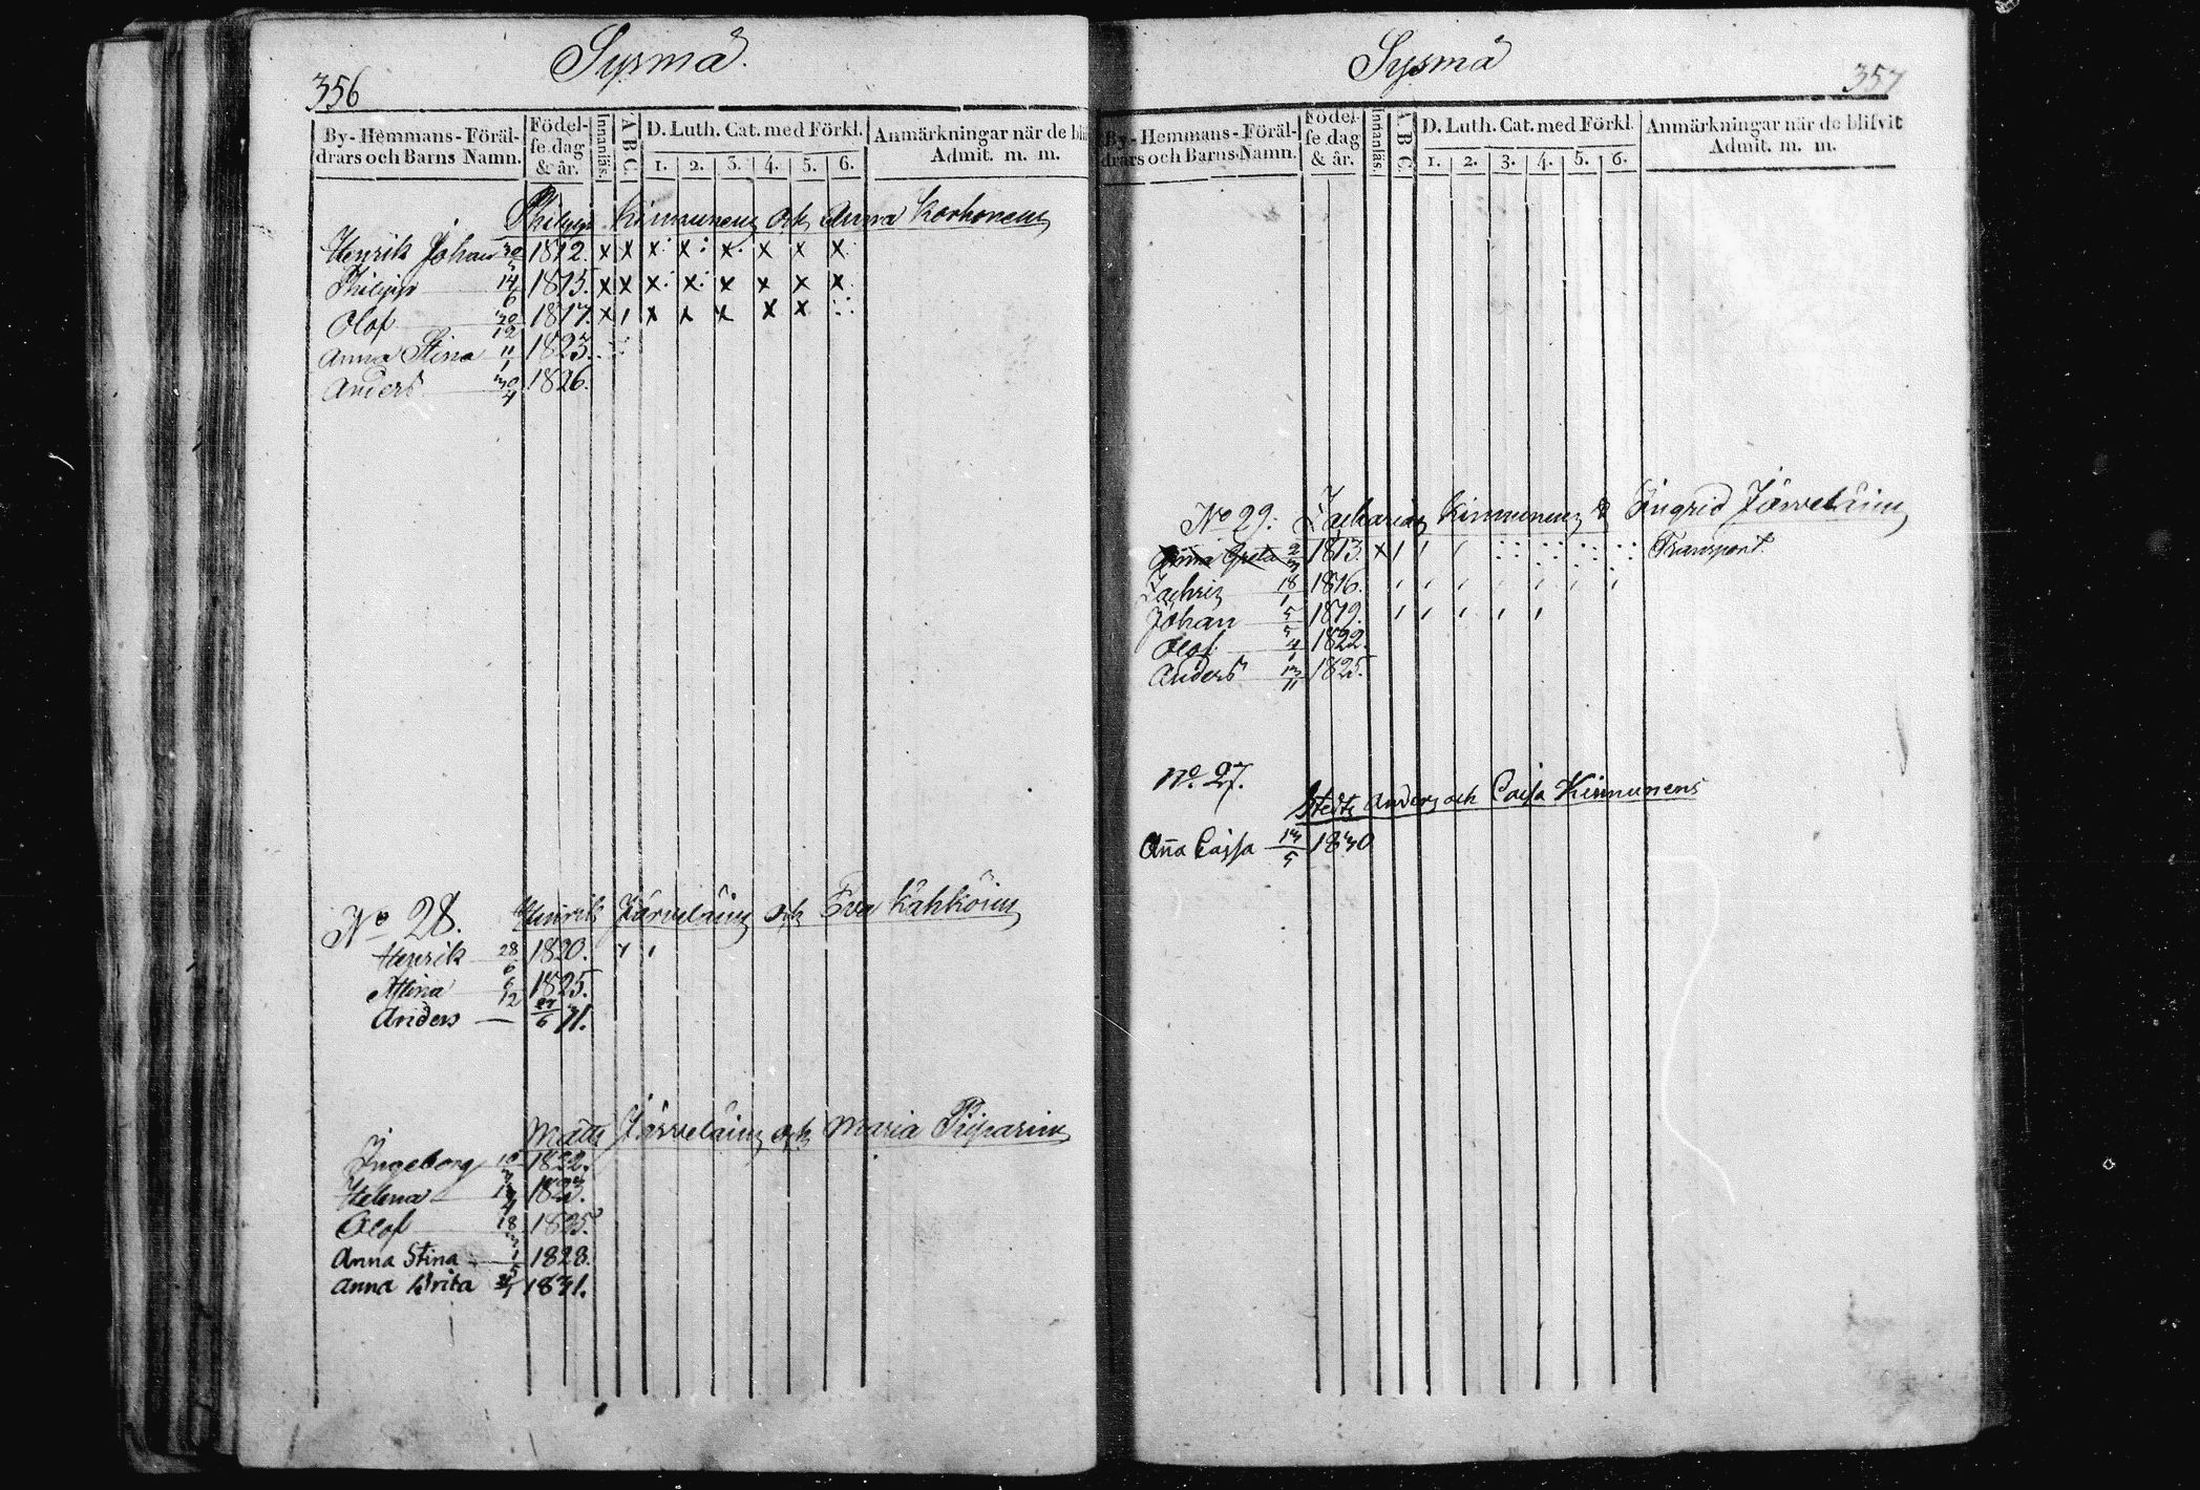 356
Sysmä.
By-Hemmans-Föräl-
drars och Barns Namn.
Födel-
se dag
& år.
Innanläs.
A B C.
D. Luth. Cat. med Förkl.
1. 2. 3. 4. 5. 6.
Anmärkningar när de bli
Admit. m. m.
Philipp Kinnunens och Anna Korhonens
Henrik Johan 30/5 1812. x x x x x x x x
Philipp 14/6 1815. x x x x x x x x
Olof 20/12 1817. x / x x x x x
Anna Stina 11/1 1823.
Anders 30/4 1826.
No 28. Henrik Järveläins och Eva Kähköins
Henrik 28/6 1820.
Stina 6/12 1825.
Anders — 27/6 31.
Matts Järveläins och Maria Piiparins
Ingeborg 1822.
Helena 1823.
Olof 18/3 1825.
Anna Stina 1/5 1828.
Anna Brita 1831.
Sysmä
357
By-Hemmans-Föräl-
drars och Barns Namn.
Födel-
se dag
& år.
Innanläs.
A B C.
D. Luth. Cat. med Förkl.
1. 2. 3. 4. 5. 6.
Anmärkningar när de blifvit
Admit. m. m.
No 29. Zacharias Kinnunens & Ingrid Järveläins
Anna Greta 2/3 1813. x / / / Transport.
Zachris 18/1 1816. / / / / / / /
Johan 5/5 1819. / / / / /
Olof 4/1 1822.
Anders 13/11 1825.
No. 27.
Stedts Anders och Caisa Kinnunens
Ana Caisa 13/5 1830